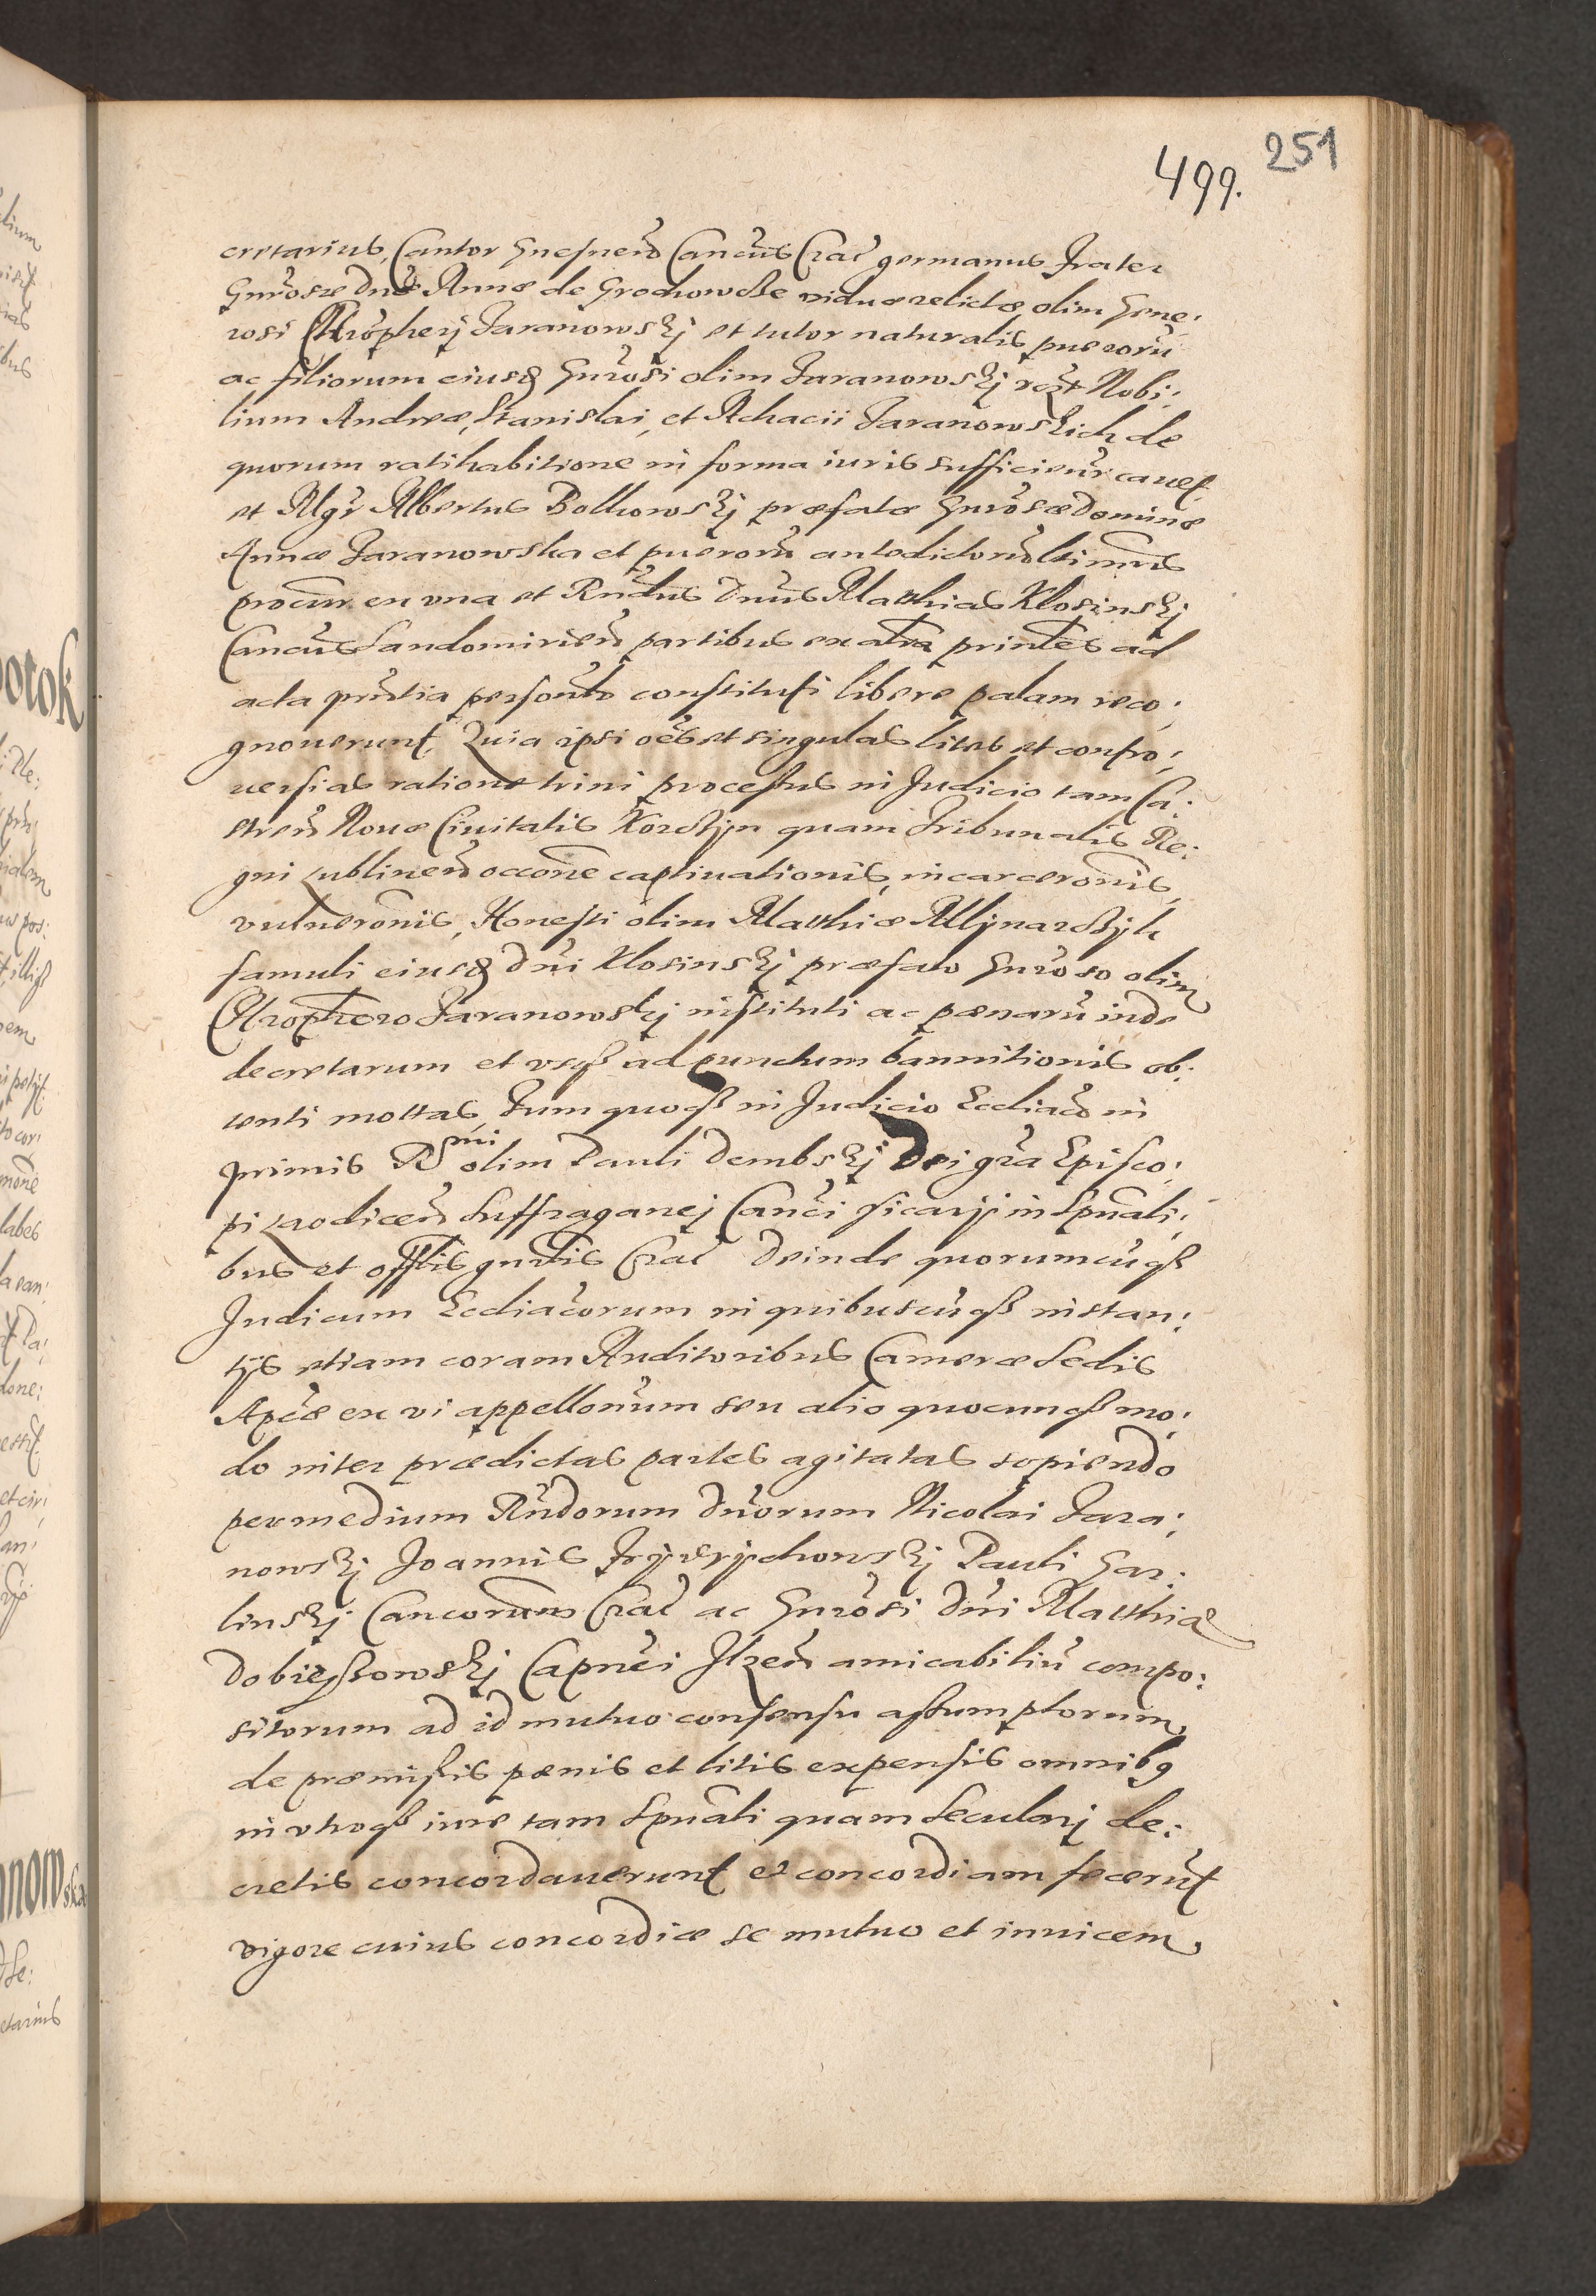 251
499.
cretarius, Cantor Gnesnen̄ Canc̄us Crac̄ germanus frater
Gnr̄osæ Dn̄æ Annæ de Grochowcze viduæ relictæ olim Gene:
rosi Chrōpherj Taranowskj et tutor naturalis puerorū
ac filiorum eiusd Gnr̄osi olim Taranowskj Nobi:
lium Andreæ, Stanislai, et Achacii Taranowskich de
quorum ratihabitione in forma iuris sufficien̄r cauet
et Mgr̄ Albertus Bolkowskj præfatæ Gnr̄osæ Dominæ
Annæ Taranowska et puerorū antedictorū ltimus
procūr ex una et Rn̄dus Dn̄us Matthias Klosinskj
Canc̄us Sandomirien̄ partibus ex altra prin̄tes ad
acta prn̄tia persōnlr constituti libere palam reco:
gnouerunt, Quia ipsi oēs et singulas lites et contro:
uersias ratione trini processus in Judicio tam Ca:
stren̄ Nouæ Ciuitatis Korczyn quam Tribunalis Re:
gni Lublinen̄ occōne captiuationis, incarcerōnis,
vulnerōnis, Honesti olim Matthiæ Mlynarczyk
famuli eiusd Dn̄i Klosinskj præfato Gnr̄oso olim
Chrōphero Taranowskj instituti ac pænarū inde
decretarum et vsq ad punctum bannitionis ob:
tenti mottas, Tum quoq in Judicio Eccl̄iaco in
primis R̄ mi olim Pauli Dembskj Dei gr̄a Episco:
pi Laodicen̄ Suffraganej Canc̄i Vicarij in Spūali:
bus et offtis gn̄rlis Crac̄ Deinde quorumcūq
Judicum Eccl̄iac̄orum in quibuscūq instan:
tijs etiam coram Auditoribus Cameræ Sedis
Apc̄æ ex vi appellōnum seu alio quocunq mo:
do inter prædictas partes agitatas sopiendo
per medium Rn̄dorum Dn̄orum Nicolai Tara:
nowskj Joannis Pauli Gar:
linskj Canc̄orum Crac̄ ac Gnr̄osi Dn̄i Matthiæ
Dobieszowskj Capn̄ei Ilzen̄ amicabiliū compo:
sitorum ad id mutuo consensu assumptorum,
de præmissis pænis et litis expensis omnibq
in vtroq iure tam Spūali quam Secularj de:
cretis concordauerunt et concordiam fecerūt
vigore cuius concordiæ se mutuo et inuicem